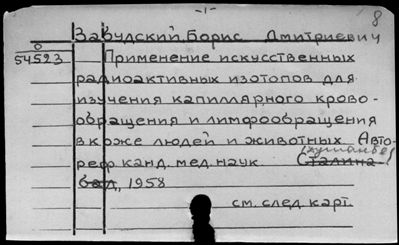 -1-
8
Забудский, Борис Дмитриевич
0
54523
Применение искусственных
радиоактивных изотопов для
изучения капиллярного крово-
обращения и лимфообращения
в коже людей и животных. Авто-
реф. канд. мед. наук. (Сталина-
бад, 1958
см. след. карт.